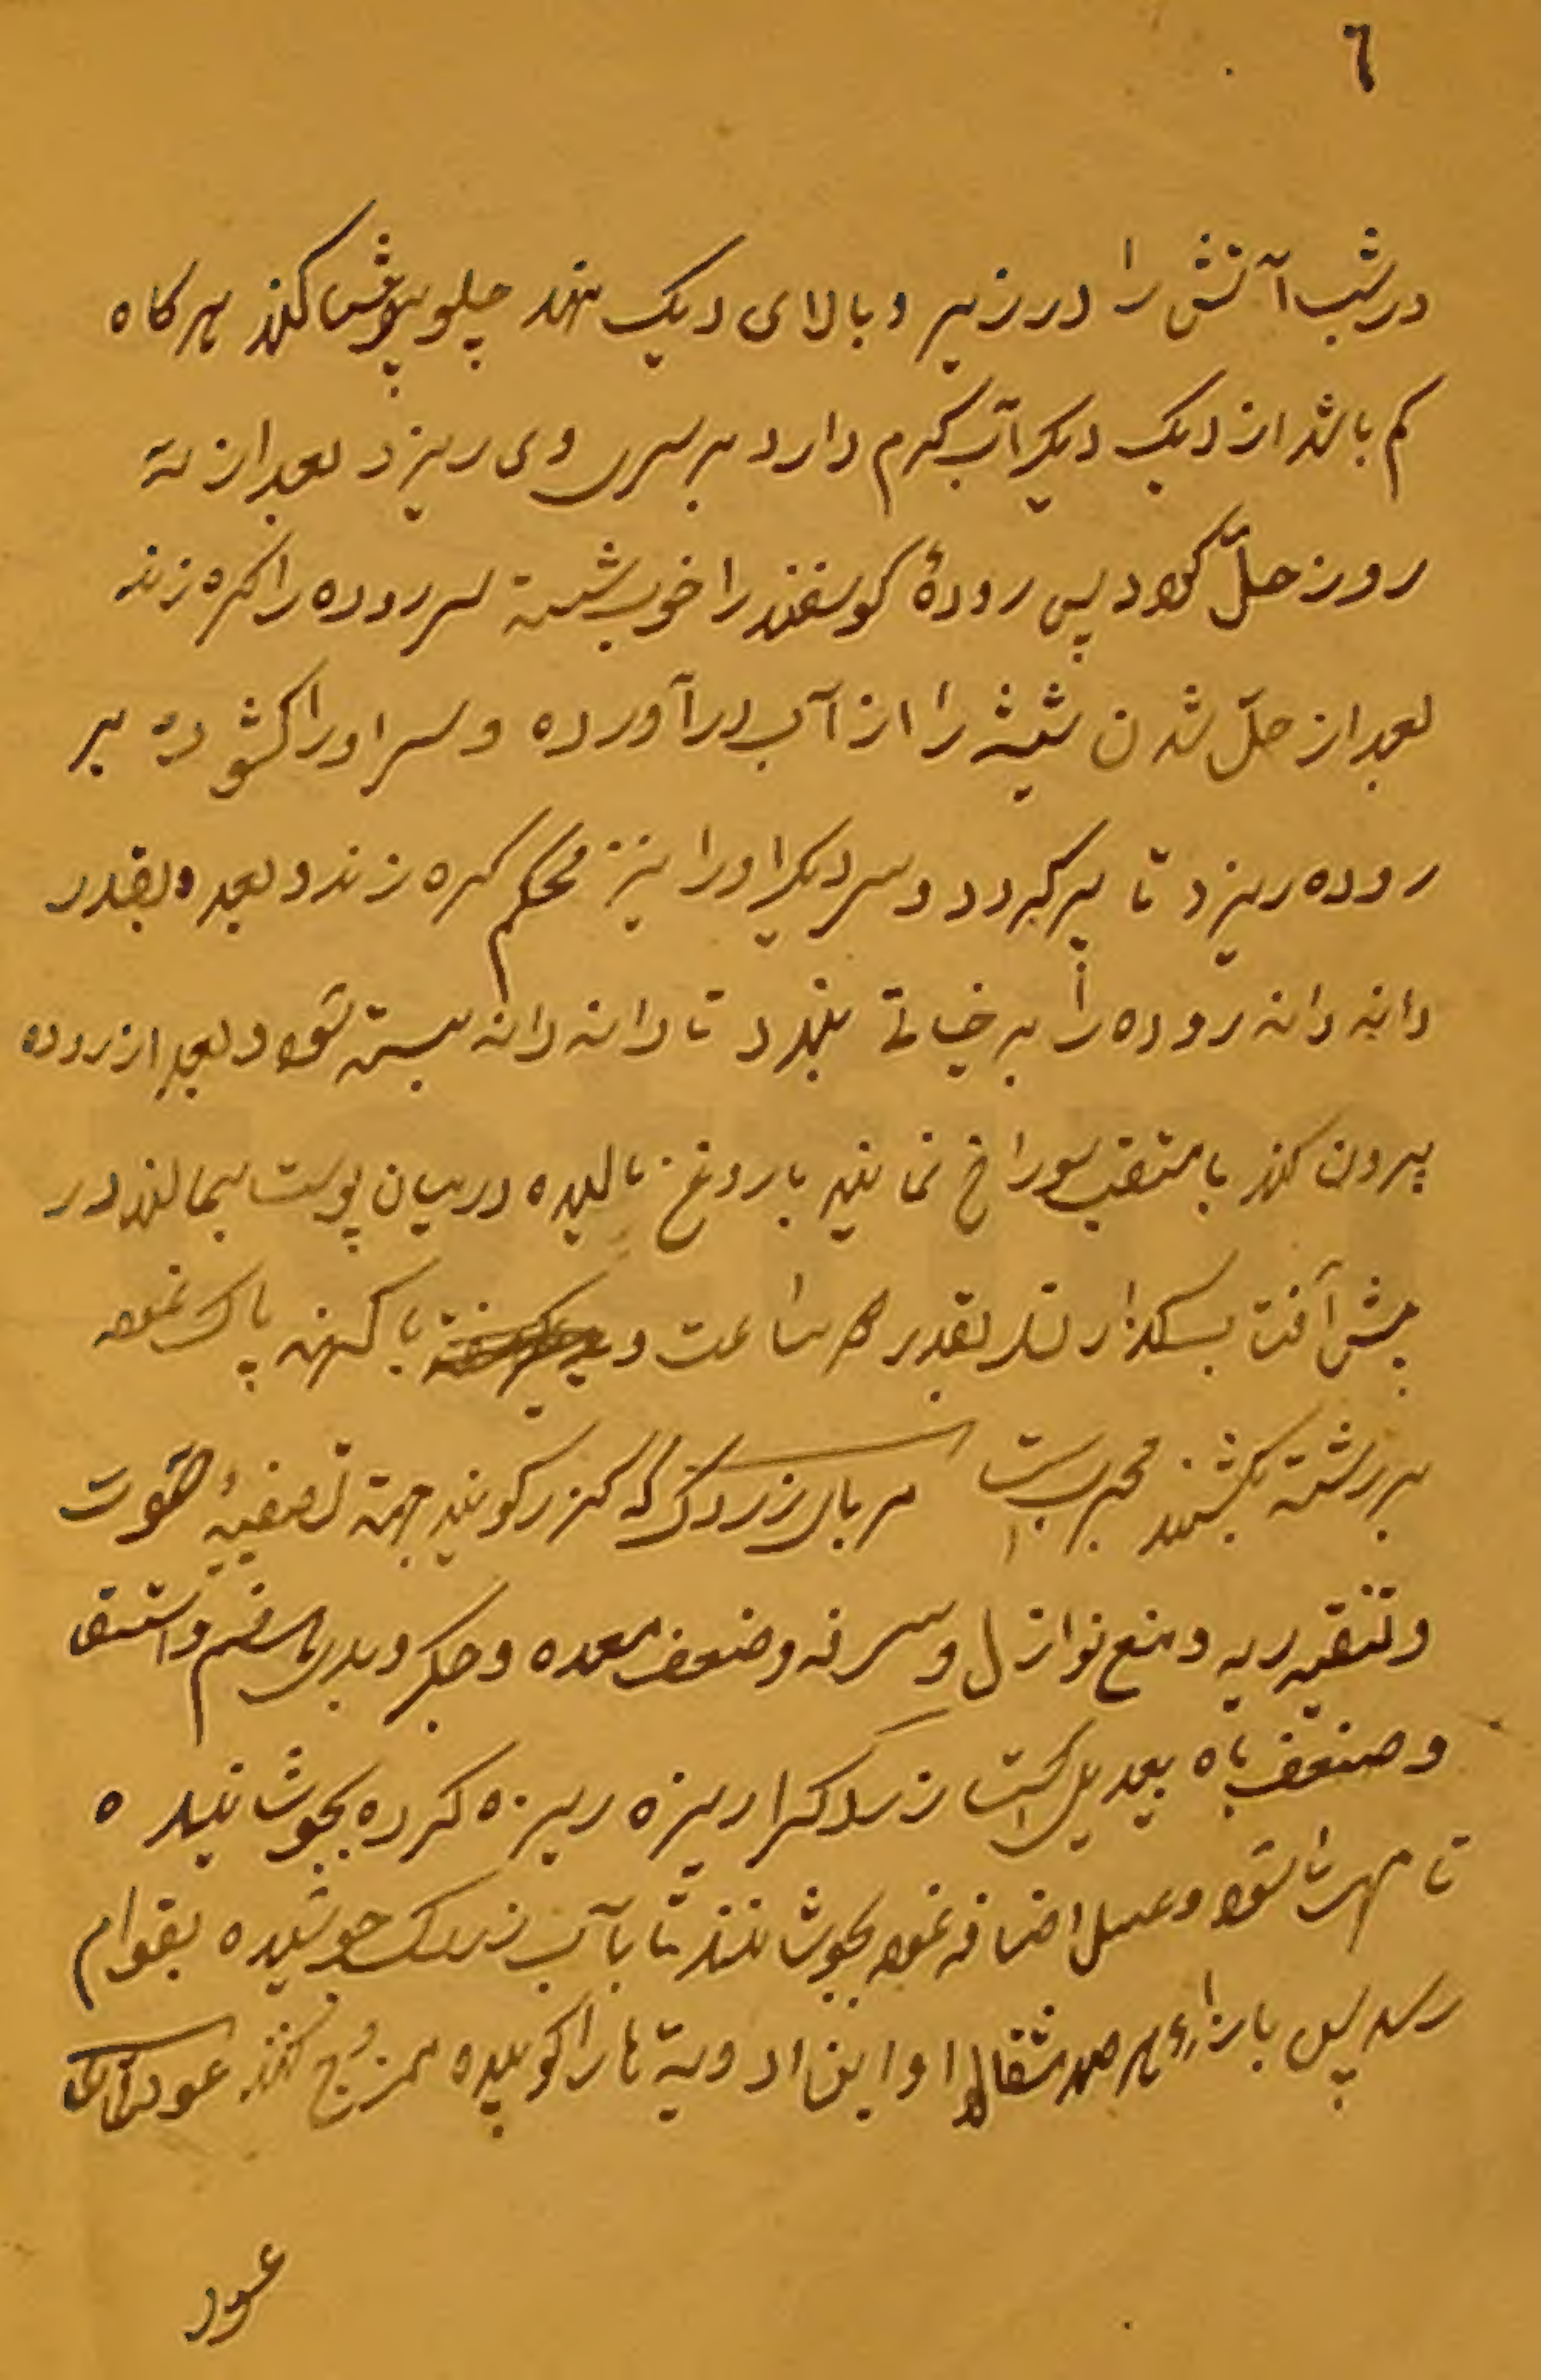 ٦
در شب آتش را در زیر و بالای دیک نهند چلو پوش کنند هرکاه
کم باشد از دیک دیکر آب کرم دارد بر سر وی ریزد بعد از سه
روز حلّ کردد پس رودهٔ کوسفند را خوب شسته سر روده را کره زند
بعد از حلّ شدن شیشه را از آب در آورده و سر او را کشوده بر
روده ریزد تا پر کردد و سر دیکر او را نیز محکم کره زند و بعده بقدر
دانه دانه روده را به خیاطی بندد تا دانه دانه بسته شود و بعد از روده
بیرون کند با مثقب سوراخ نمایند با روغن مالیده در میان پوست بمالند در
پیش آفتاب بقدر ساعت و با کهنه پاک نموده
بر رشته بکشند مجربست مربای زردک که کزر کویند جهة تصفیهٔ صوت
و تنقیه ریه و منع نوازل و سرفه و ضعف معده و جکر و بدی هضم و استسقا
و ضعف باه بعدیل است زردک را ریزه ریزه کرده بجوشانیده
تا مهرا شود و عسل اضافه نموده بجوشانند تا با آب زردک جوشیده بقوام
رسد پس بازاء هر صد مثقال او این ادویة ها را کوبیده ممزوج کنند عود
عود